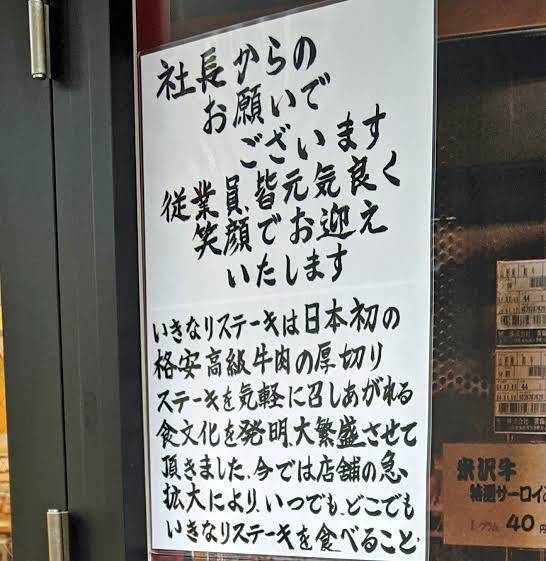 社長からの
お願いで
ございます
従業員、皆元気良く
笑顔でお迎え
いたします
いきなりステーキは日本初の
格安高級牛肉の厚切り
ステーキを気軽に召しあがれる
食文化を発明、大繁盛させて
頂きました。今では店舗の急
拡大により、いつでも、どこでも
いきなりステーキを食べること
米沢牛
特選サーロイン
1グラム 40円